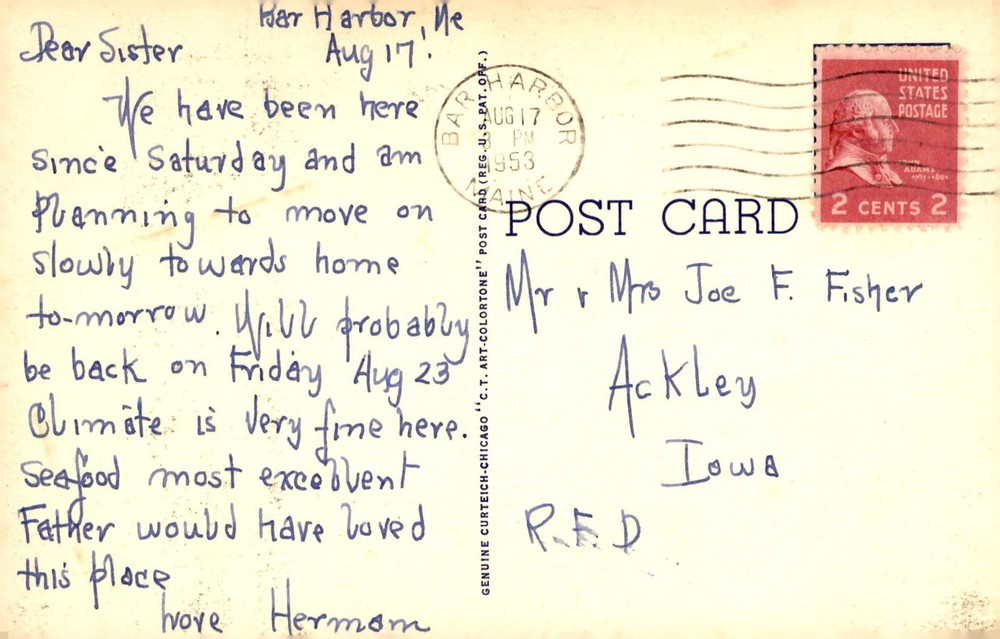 Bar Harbor, Me
Aug 17!
Dear Sister
We have been here
since Saturday and am
planning to move on
slowly towards home
to-morrow. Will probably
be back on Friday Aug 23
Climate is very fine here.
Seafood most excellent
Father would have loved
this place
Love Hermam
GENUINE CURTEICH-CHICAGO "C.T. ART-COLORTONE" POST CARD (REG. U.S. PAT. OFF.)
BAR HARBOR
AUG 17
3 PM
1953
MAINE
UNITED
STATES
POSTAGE
JOHN
ADAMS
1797-1801
2 CENTS 2
POST CARD
Mr & Mrs Joe F. Fisher
Ackley
Iowa
R.F.D